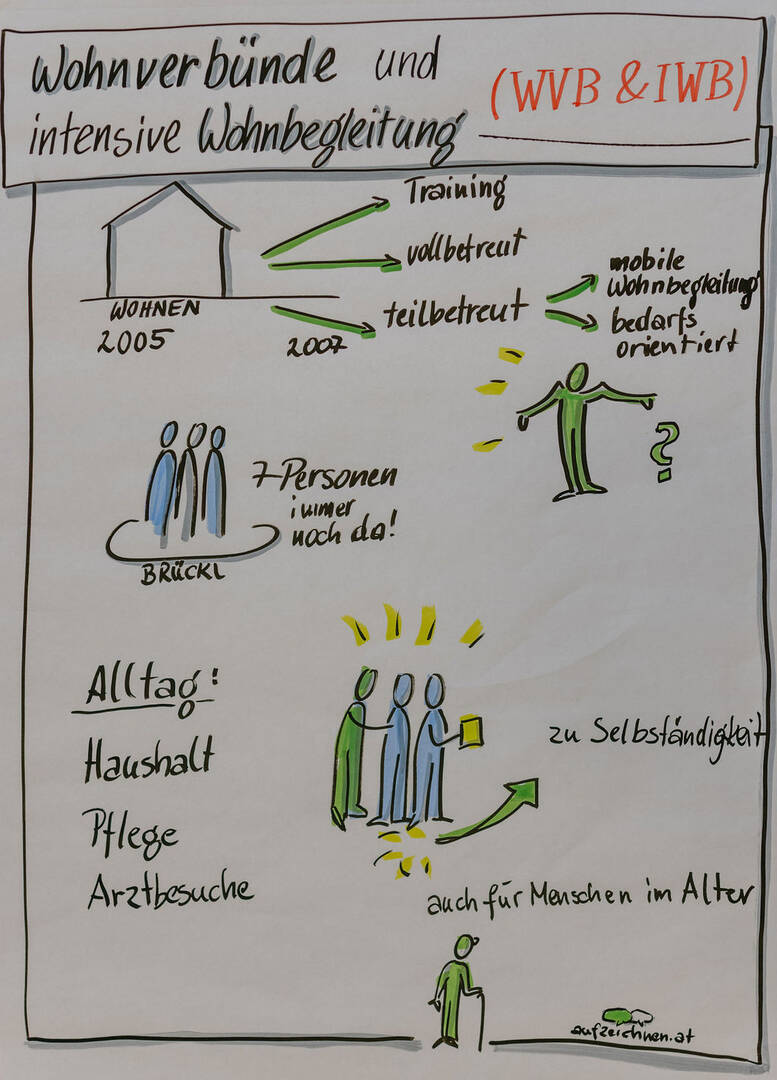 Wohnverbünde und
intensive Wohnbegleitung
(WVB & IWB)
Training
vollbetreut
teilbetreut
mobile
Wohnbegleitung
bedarfs
orientiert
WOHNEN
2005
2007
?
7 Personen
immer
noch da!
BRÜCKL
Alltag:
Haushalt
Pflege
Arztbesuche
zu Selbständigkeit
auch für Menschen im Alter
aufzeichnen.at